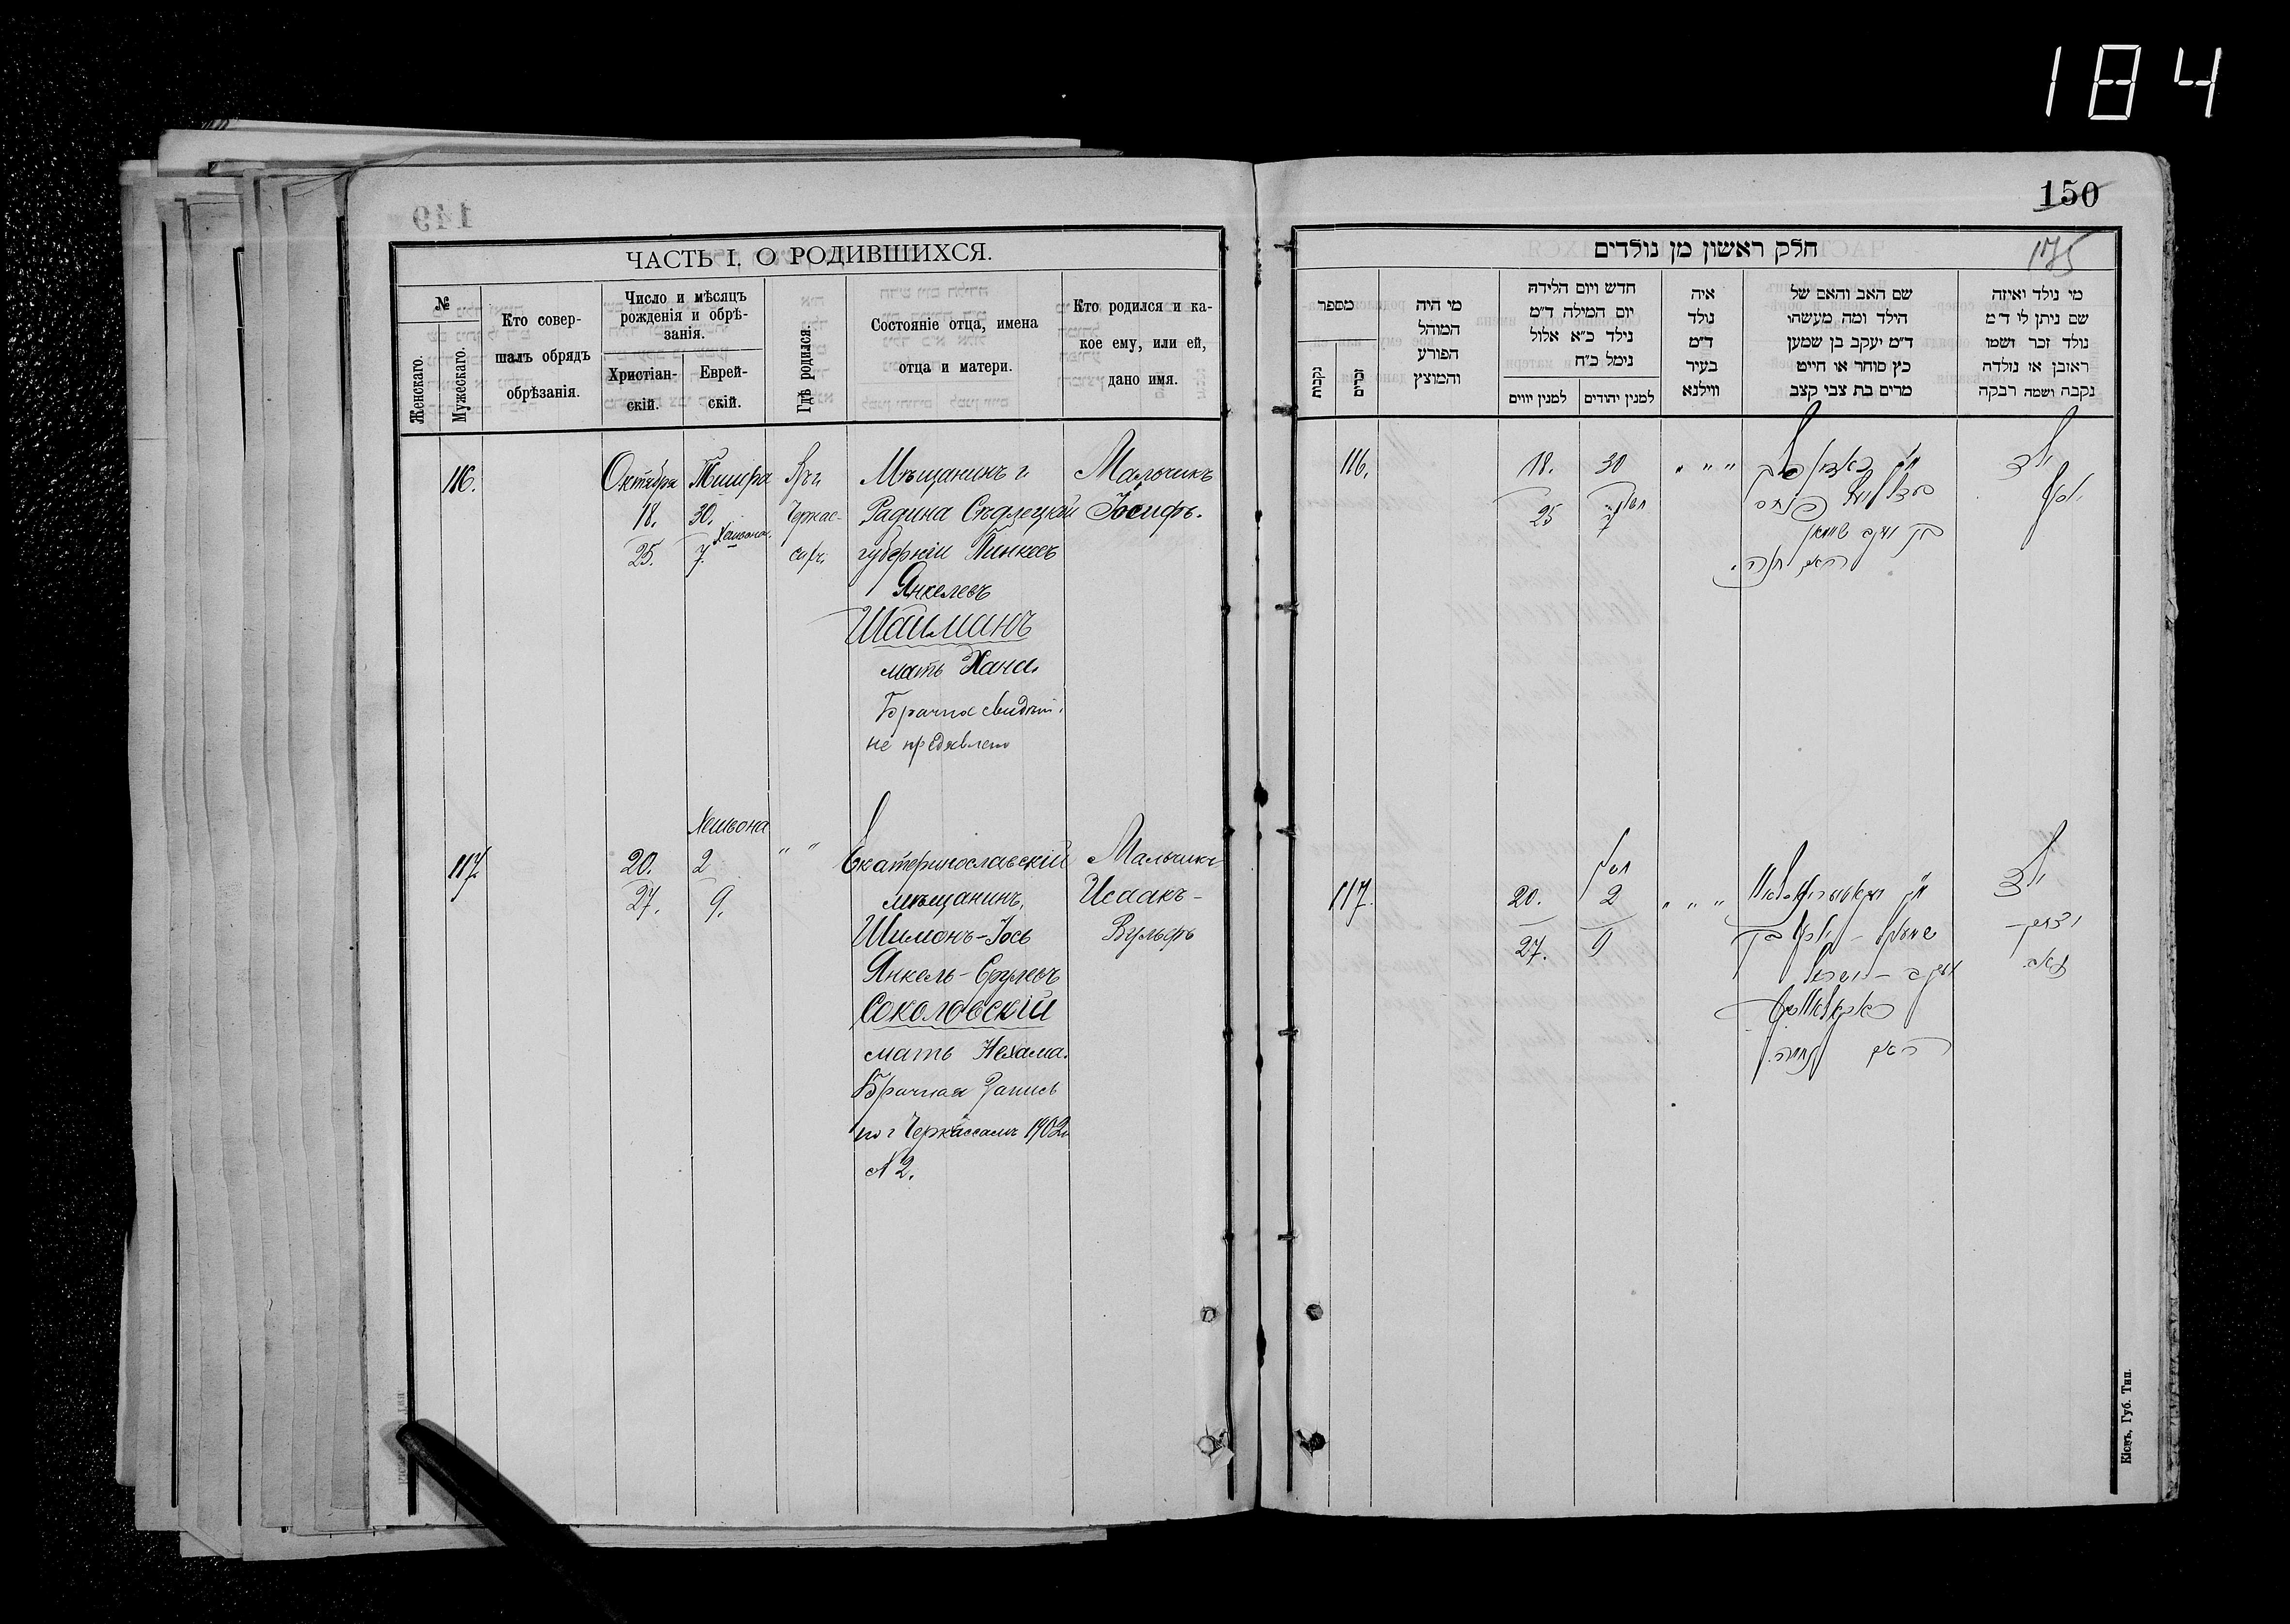 184
150
175
ЧАСТЬ I. О РОДИВШИХСЯ.
№
Женскаго.
Мужескаго.
Кто совер-
шалъ обрядъ
обрѣзанія.
Число и мѣсяцъ
рожденія и обрѣ-
занія.
Христіан-
скій.
Еврей-
скій.
Гдѣ родился.
Состояніе отца, имена
отца и матери.
Кто родился и ка-
кое ему, или ей,
дано имя.
116.
Октября
18.
25.
Тишра
30.
Хешвона.
7.
Въ г.
Черкас-
сахъ
Мѣщанинъ г.
Радина Сѣдлецкой
губерніи Пинхосъ
Янкелевъ
Шайманъ
мать Хана.
Брачное свидѣт.
не предявлено
Мальчикъ
Іосифъ.
117.
20.
27.
Хешвона
2
9.
" "
Екатеринославскій
мѣщанинъ,
Шимонъ-Іось
Янкель-Срулевъ
Соколовскій
мать Нехама.
Брачная запись
по г Черкассамъ 1902 г.
№ 2.
Мальчикъ
Исаакъ-
Вульфъ
חלק ראשון מן נולדים
מספר
נקבות
זכרים
מי היה
המוהל
הפורע
והמוצץ
חדש ויום הלידה
יום המילה ד״מ
נילד כ״א אלול
נימל כ״ח
למנין יווים
למנין יהודים
איה
נולד
ד״מ
בעיר
ווילנא
שם האב והאם של
הילד ומה מעשהו
ד״מ יעקב בן שמען
כץ סוחר או חייט
מרים בת צבי קצב
מי נולד ואיזה
שם ניתן לו ד״מ
נולד זכר ושמו
ראובן או נולדה
נקבה ושמה רבקה
116.
18.
25
30
7
" " "
פנחס
בן יעקב שיימאן
האם חנה.
ילד
יוסף
117.
20.
27.
חשון
2
9
" " "
יעקב - ישראל
האם נחמה.
ילד
יצחק-
Кіевъ, Губ. Тип.